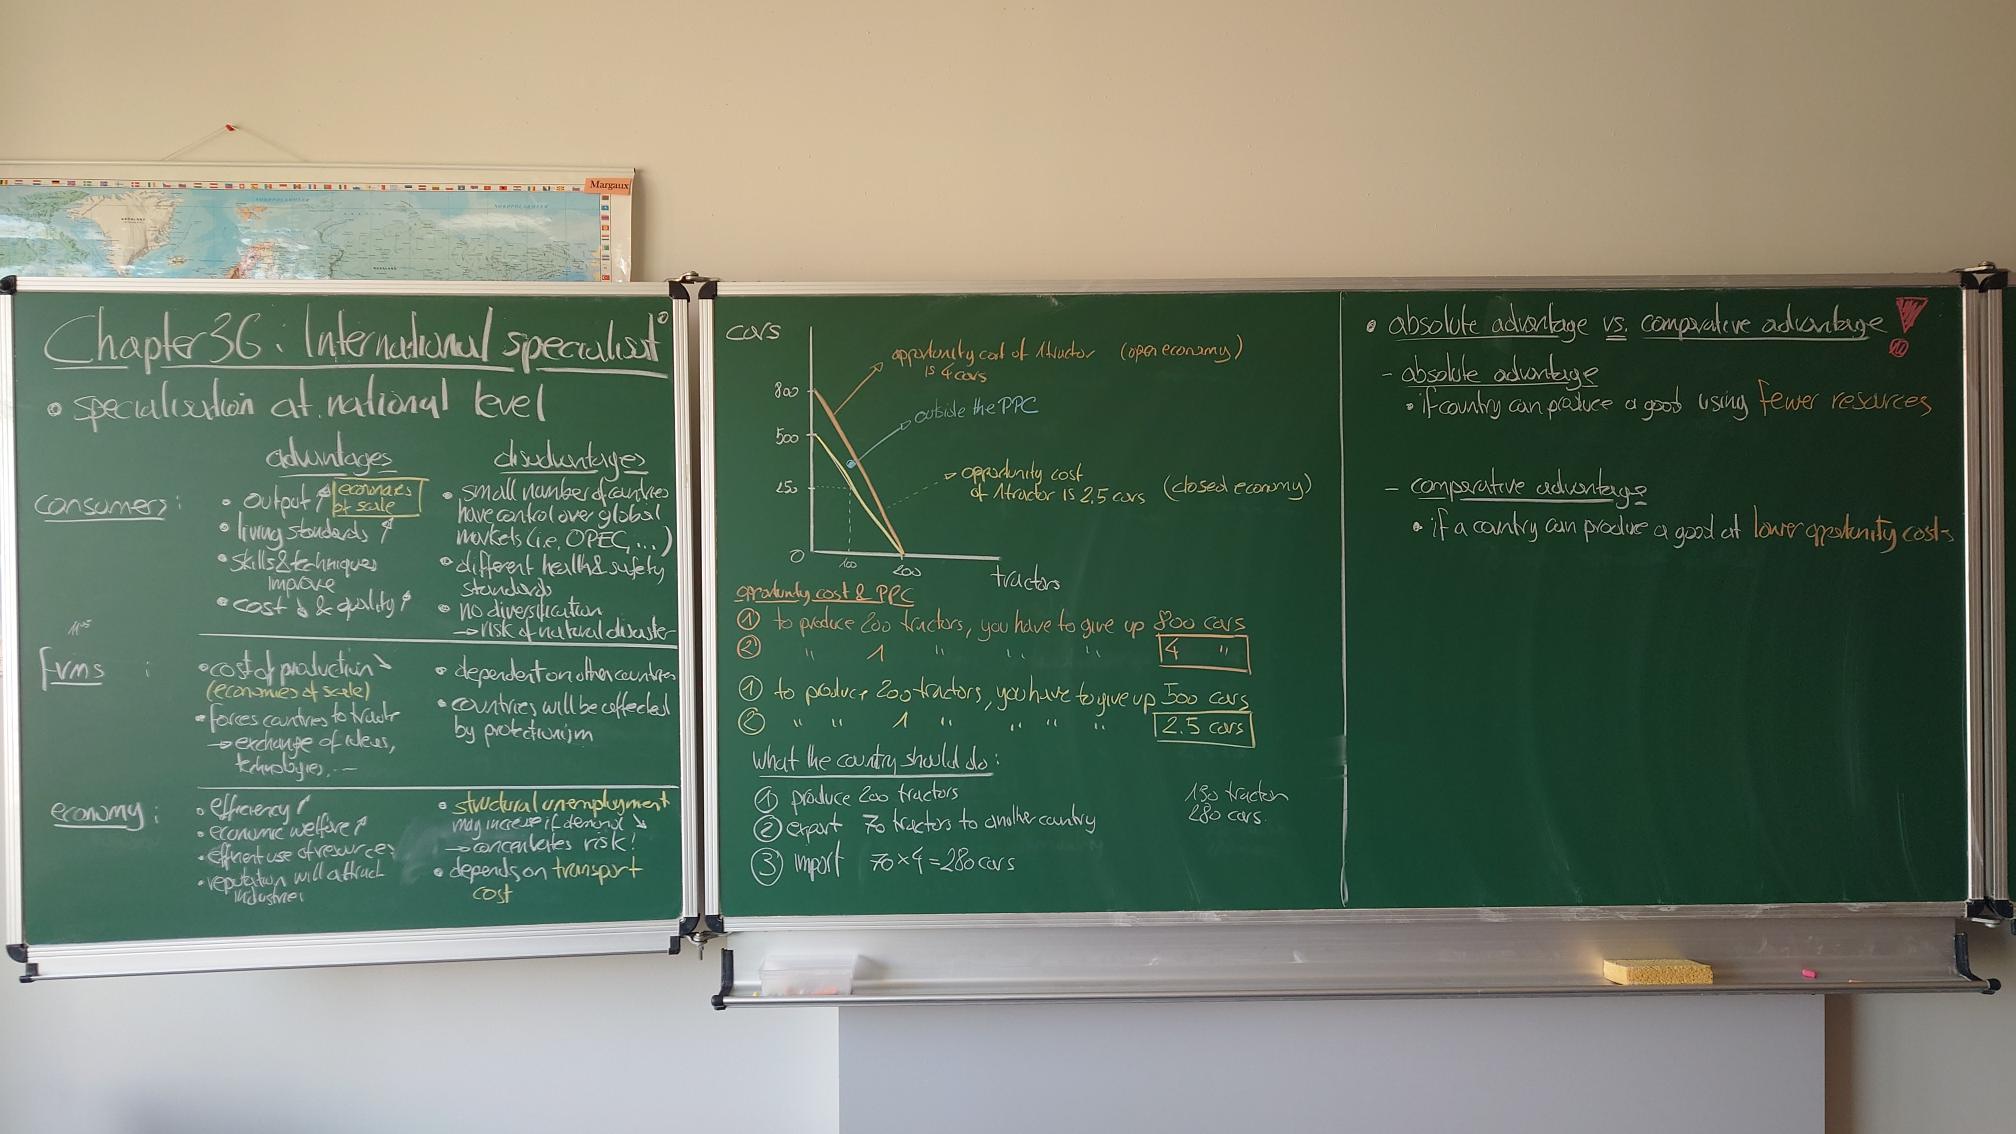 Margaux
Chapter 36: International specialisat°
• specialisation at national level
advantages
disadvantages
consumers:
• output ↑ economies of scale
• living standards ↑
• skills & techniques
improve
• cost ↓ & quality ↑
• small number of countries
have control over global
markets (i.e. OPEC, ...)
• different health & safety
standards
• no diversification
→ risk of natural disaster
firms :
• cost of production ↘
(economies of scale)
• forces countries to trade
→ exchange of ideas,
technologies, ...
• dependent on other countries
• countries will be affected
by protectionism
economy:
• efficiency ↑
• economic welfare ↑
• efficient use of resources
• reputation will attract
industries
• structural unemployment
may increase if demand ↘
→ concentrates risk!
• depends on transport
cost
cars
800
500
250
0
100
200
tractors
opportunity cost of 1 tractor (open economy)
is 4 cars
outside the PPC
opportunity cost
of 1 tractor is 2,5 cars (closed economy)
opportunity cost & PPC
① to produce 200 tractors, you have to give up 800 cars
② " 1 " " " 4 "
① to produce 200 tractors, you have to give up 500 cars
② " " 1 " " " " 2.5 cars
What the country should do:
① produce 200 tractors
② export 70 tractors to another country
③ import 70 × 4 = 280 cars
130 tractors
280 cars
• absolute advantage vs. comparative advantage !
- absolute advantage
• if country can produce a good using fewer resources
- comparative advantage
• if a country can produce a good at lower opportunity costs